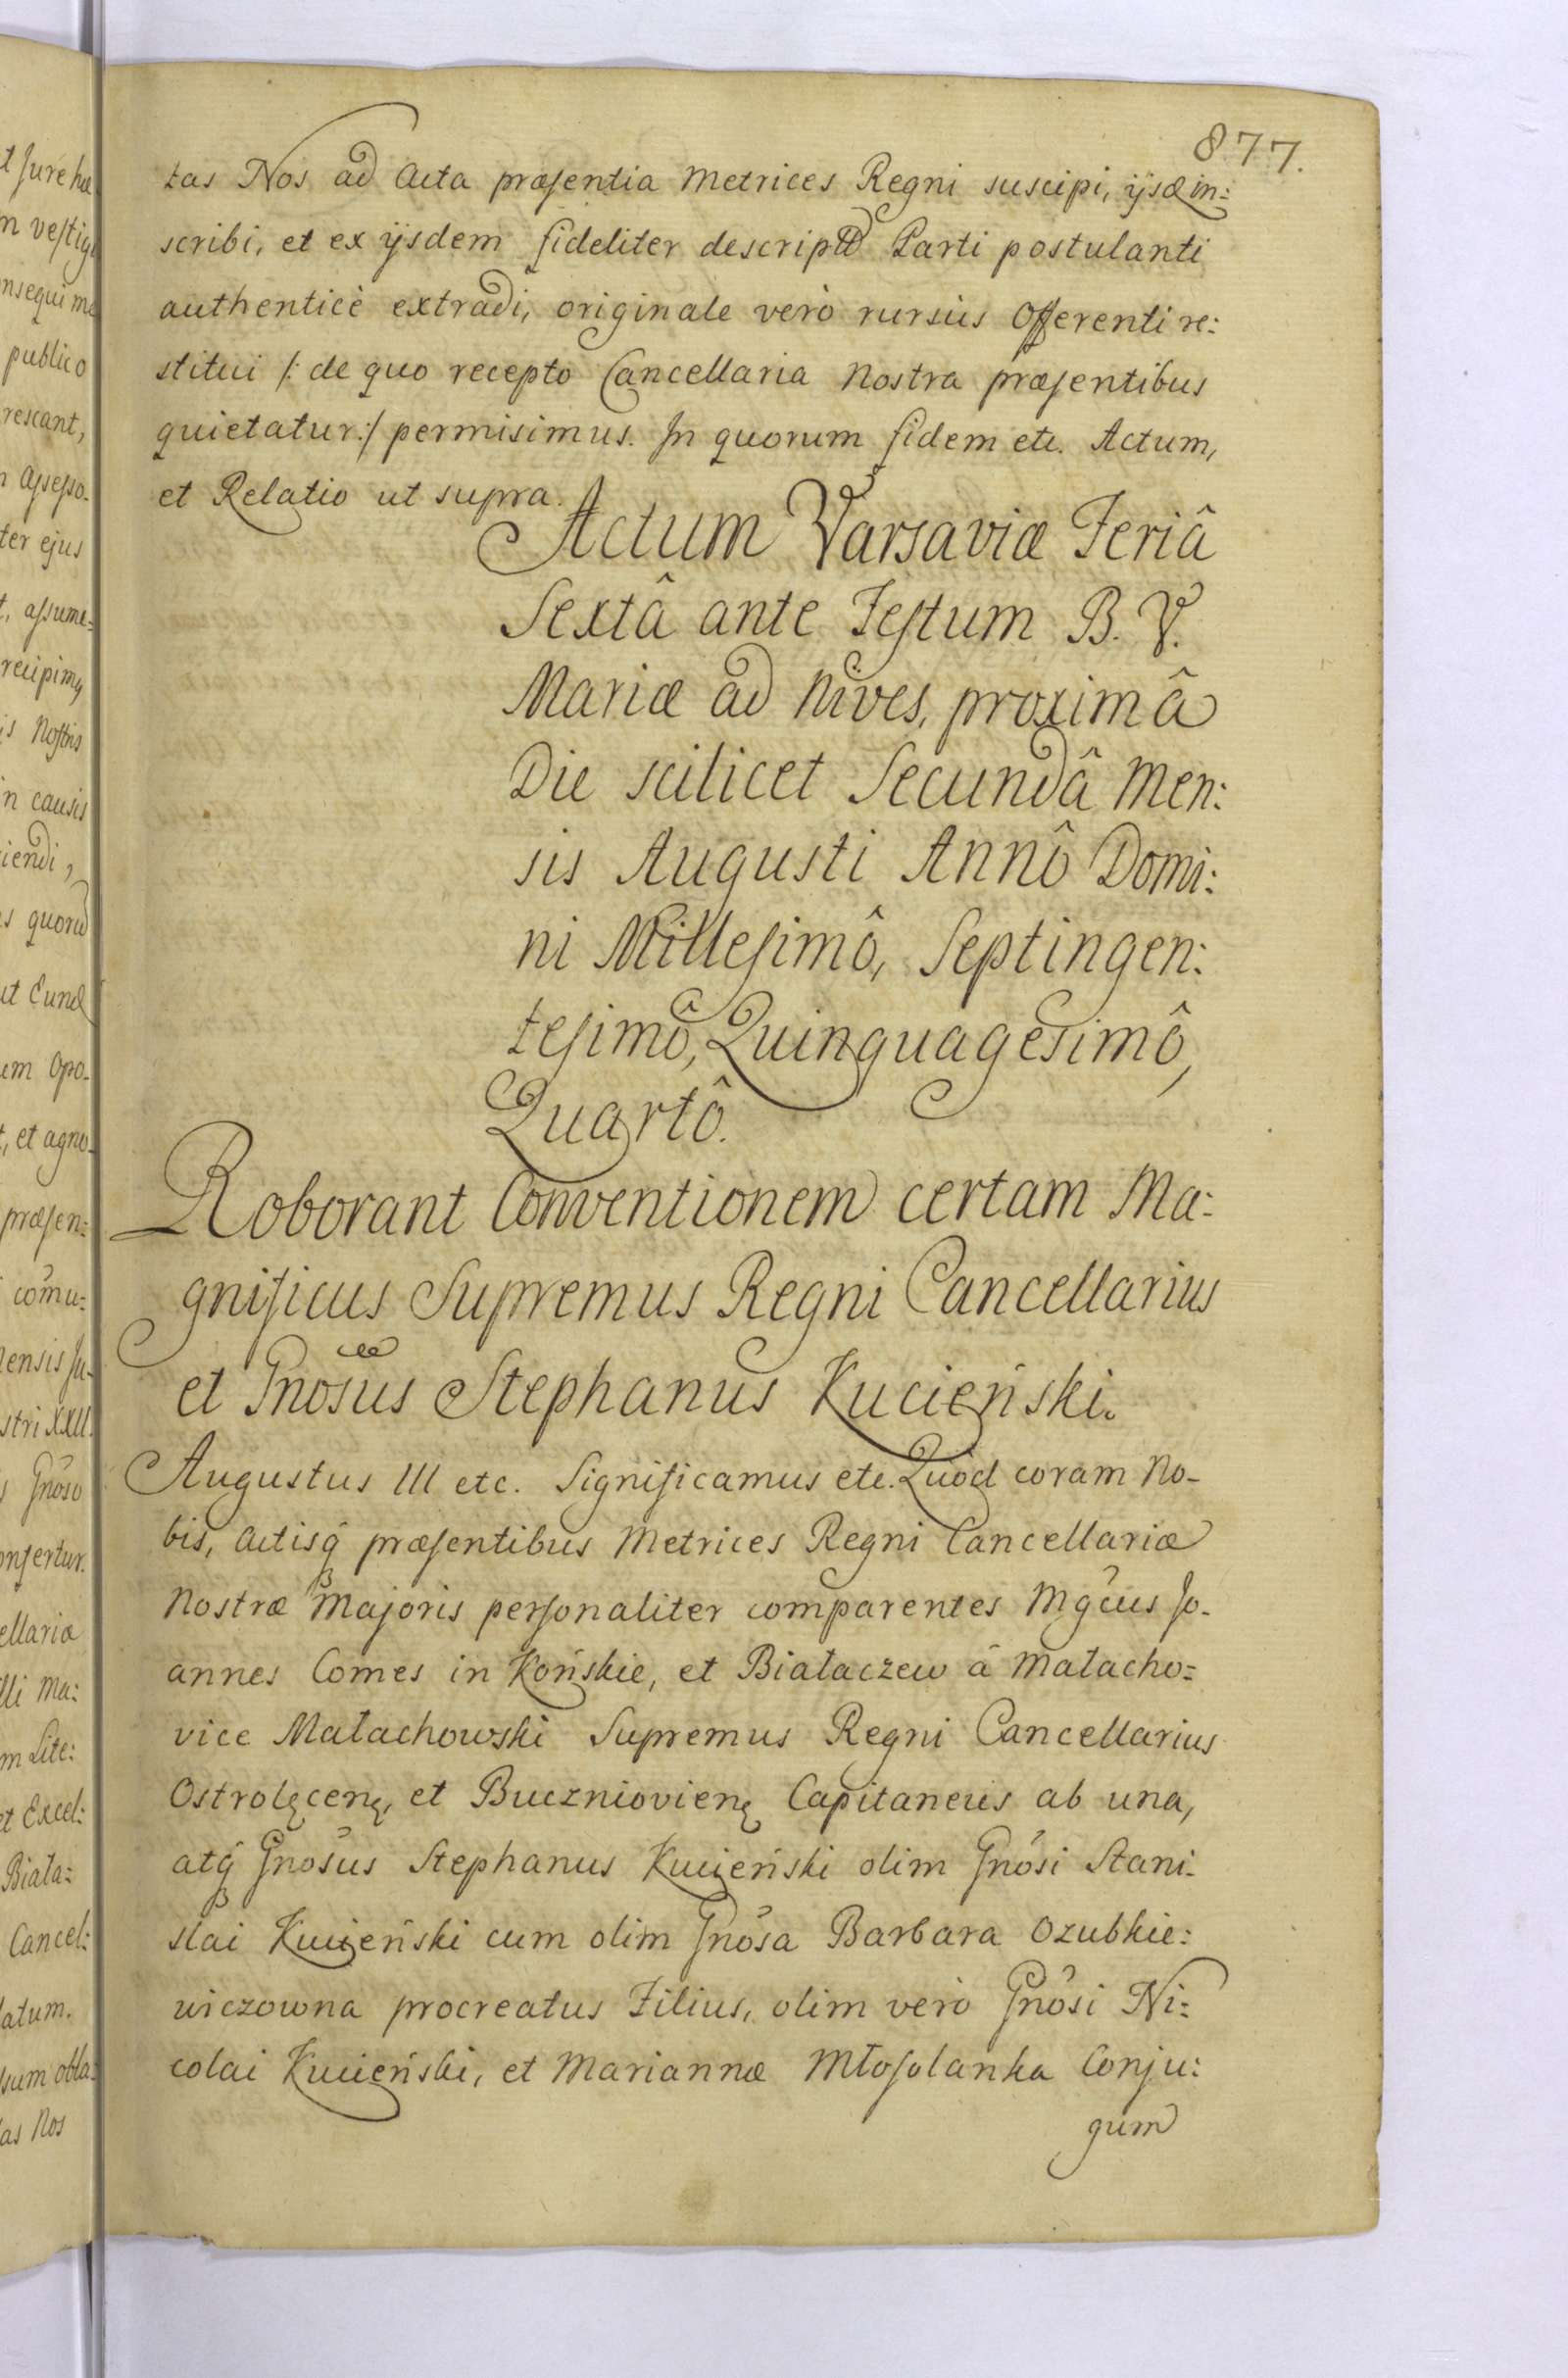 877.
tas Nos ad Acta præsentia Metrices Regni suscipi, ijsq in:
scribi, et ex ijsdem fideliter descriptũ Parti postulanti
authenticè extradi, originale verò rursùs Offerenti re:
stitui /: de quo recepto Cancellaria Nostra præsentibus
quietatur :/ permisimus. In quorum fidem etc. Actum,
et Relatio ut supra.
Actum Varsaviæ Feriâ
Sextâ ante Festum B. V.
Mariæ ad Nives, proximâ
Die scilicet Secundâ Men:
sis Augusti Annô Domi:
ni Millesimô, Septingen:
tesimô, Quinquagesimô,
Quartô.
Roborant Conventionem certam Ma:
gnificus Supremus Regni Cancellarius
et Gnosus Stephanus Kucieński.
Augustus III etc. Significamus etc. Quòd coram No-
bis, Actisq́ præsentibus Metrices Regni Cancellariæ
Nostræ Majoris personaliter comparentes Mgcus Jo-
annes Comes in Końskie, et Białaczew à Małacho:
vice Małachowski Supremus Regni Cancellarius
Ostrolęcenę, et Buczniovienę Capitaneus ab una,
atq́ Gnosus Stephanus Kucieński olim Gnosi Stani:
slai Kucieński cum olim Gnosa Barbara Ozubkie:
wiczowna procreatus Filius, olim verò Gnosi Ni:
colai Kucieński, et Mariannæ Młosolanka Conju:
gum
t Jure hæ
m vestig
nsequi me
publico
rescant,
ter ejus
t, assume:
recipimq
is Nostris
in causis
iendi,
s quorũ
ut Eund
um Opo-
t, et agno-
præsen:
comu:
ensis Ju-
stri XXII.
Gnoso
onsertur.
ellariæ
lli Ma:
m Lite:
et Excel:
Biała:
Cancel:
latum.
sum obla:
as Nos